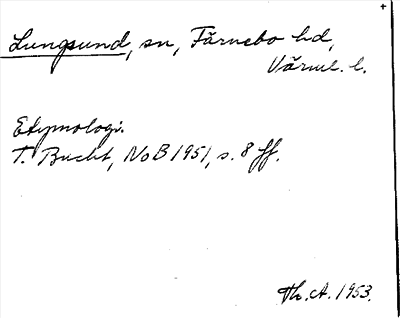 Lungsund, sn, Färnebo hd,
Värml. l.
Etymologi.
T. Bucht, NoB 1951, s. 8 ff.
Th. A. 1953.